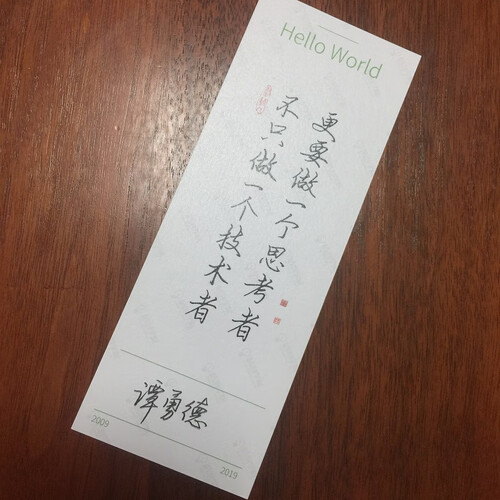 Hello World
不只做一个技术者
更要做一个思考者
谭勇德
2009
2019